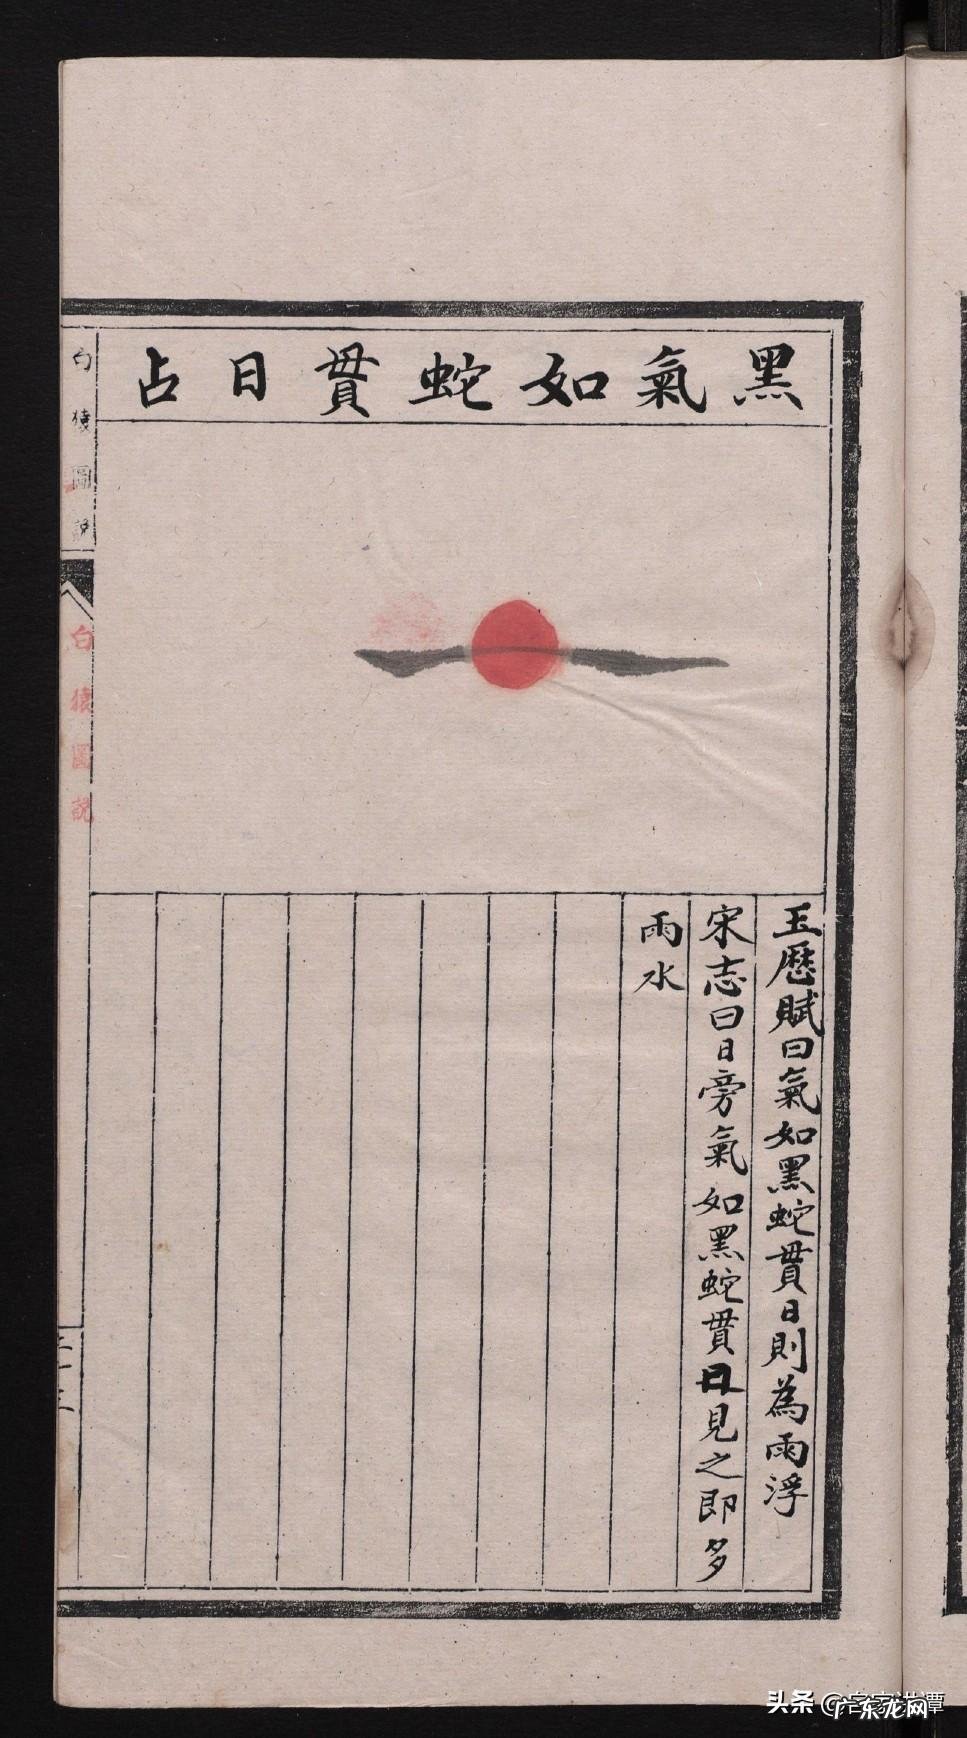 黑氣如蛇貫日占
玉曆賦曰氣如黑蛇貫日則為雨浮
宋志曰日旁氣如黑蛇貫日見之即多
雨水
白猿圖説
白猿圖説
二十三
头条
广东龙网